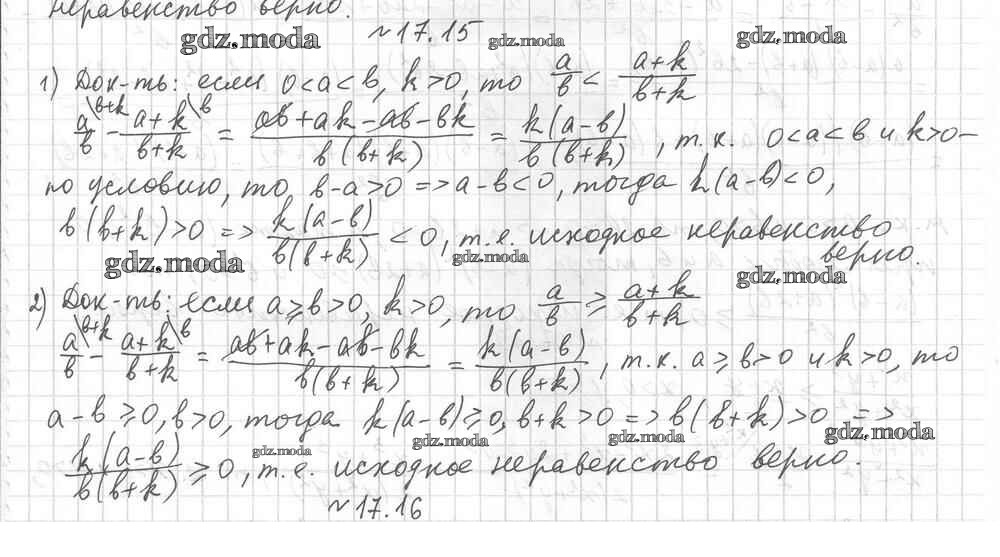 неравенство верно.
gdz.moda
№17.15
gdz.moda
gdz.moda
1) Док-ть: если 0<a<b, k>0, то a/b < (a+k)/(b+k)
a/b \b+k − (a+k)/(b+k) \b = (ab+ak−ab−bk)/(b(b+k)) = k(a−b)/(b(b+k)), т.к. 0<a<b и k>0−
по условию, то, b−a>0 => a−b<0, тогда k(a−b)<0,
b(b+k)>0 => k(a−b)/(b(b+k)) < 0, т.е. исходное неравенство
верно.
gdz.moda
gdz.moda
gdz.moda
2) Док-ть: если a⩾b>0, k>0, то a/b ⩾ (a+k)/(b+k)
a/b \b+k − (a+k)/(b+k) \b = (ab+ak−ab−bk)/(b(b+k)) = k(a−b)/(b(b+k)), т.к. a⩾b>0 и k>0, то
a−b⩾0, b>0, тогда k(a−b)⩾0, b+k>0 => b(b+k)>0 =>
gdz.moda
gdz.moda
gdz.moda
gdz.moda
k(a−b)/(b(b+k)) ⩾ 0, т.е. исходное неравенство верно.
№17.16